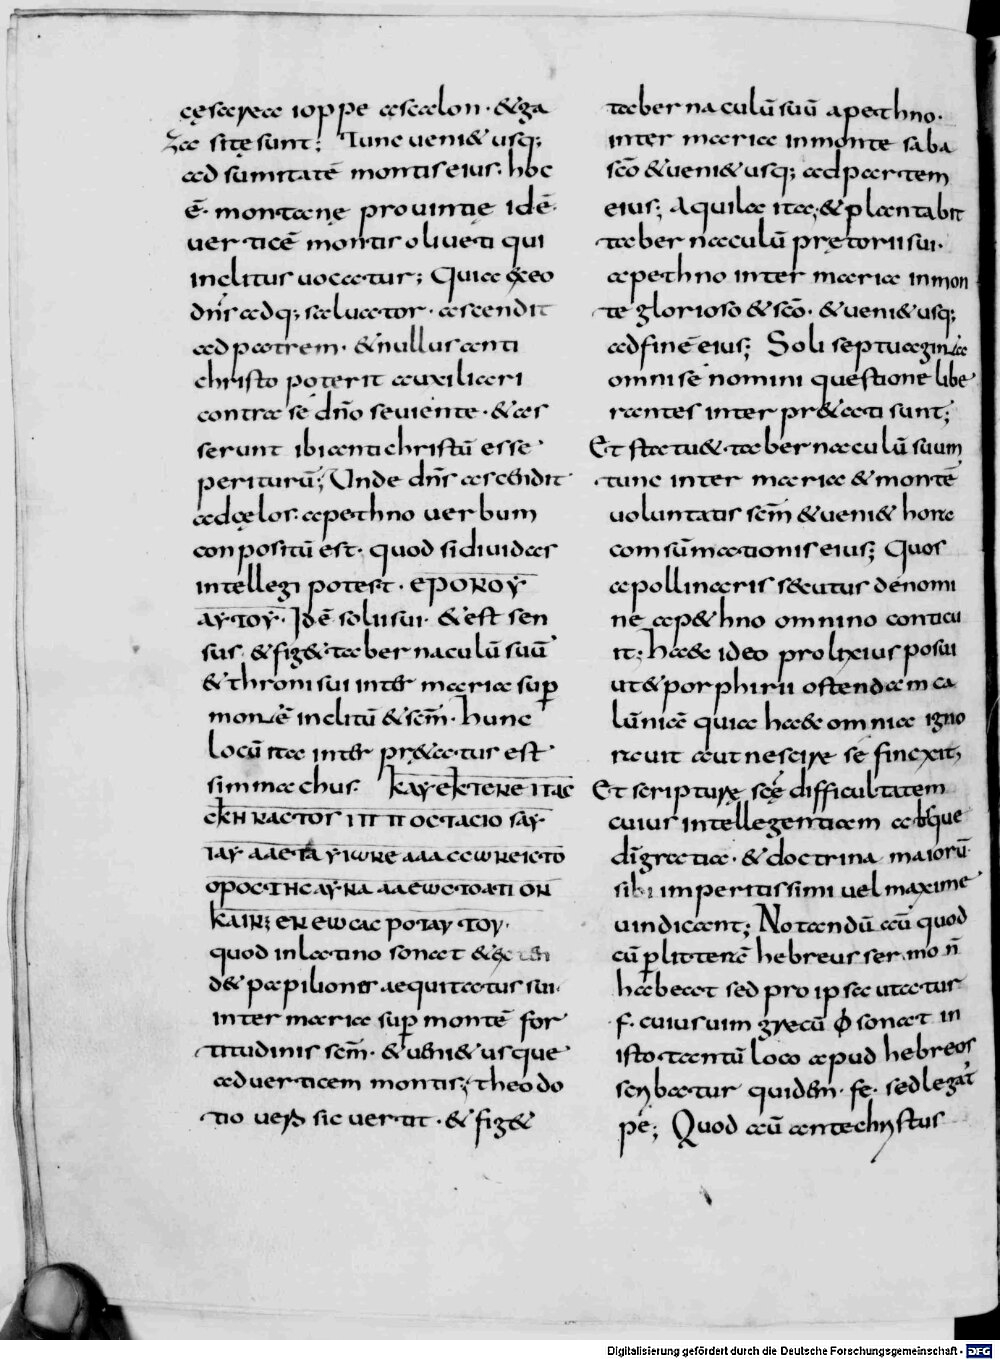 cęsarea ioppe ascalon· &ga
zae sitę sunt; Tunc ueni& usq;
ad sūmitatē montis eius· hoc
ē· montanę prouintię idē·
uerticē montis oliueti qui
inclitus uocatur; Quia ex eo
dn̄s adq; saluator· ascendit
ad patrem· &nullus anti
christo poterit auxiliari
contra se dn̄o seuiente· &as
serunt ibi antichristū esse
periturū; Unde dn̄s ascendit
ad cęlos· apethno uerbum
conpositū est· quod si diuidas
intellegi potest· ЄΡΟΝΟΥ
ΑΥΤΟΥ· Idē solii sui· &est sen
sus &fig& tabernaculū suū
&throni sui inter maria sup̄
montē inclitū &sc̄m· hunc
locū ita inter prętatur est
simmachus·
quod in latino sonat &exten
d& papilionis aequitatus sui·
inter maria sup̄ montē for
titudinis sc̄m· &ueni& usque
ad uerticem montis; theodo
tio uero sic uertit· &fig&
tabernaculū suū apethno·
inter maria in monte saba
sc̄o &ueni& usq; ad partem
eius; Aquila ita; &plantabit
tabernaculū prętorii sui·
apethno inter maria in mon
te glorioso &sc̄o· &ueni& usq;
ad finē eius; Soli septuaginta
omni se nomini questione libe
rantes interpr&ati sunt;
Et statu& tabernaculū suum
tunc inter maria &montē
uoluntatis sc̄m &ueni& hora
comsūmationis eius; Quos
apollinaris secutus denomi
ne ap&hno omnino conticu
it; haec ideo prolixius posui
ut &porphirii ostendam ca
lūniā quia haec omnia igno
rauit aut nescire se finexit,
Et scripturę scę difficultatem
cuius intellegentiam absque
dī gratia· &doctrina maiorū
sibi imperitissimi uel maxime
uindicant; Notandū aū quod
cū p litterā hebreus sermo n̄
habeat sed pro ipsa utatur
f· cuius uim grecū φ sonat in
isto tantū loco apud hebreos
scribatur quidem· fe· sed legat̄
pe; Quod aū antechristus